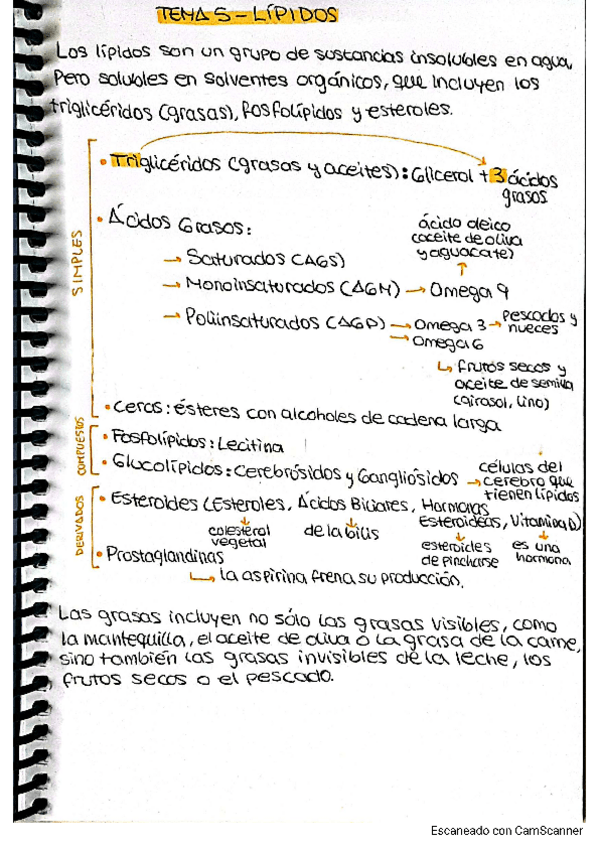 TEMA 5 - LÍPIDOS
Los lípidos son un grupo de sustancias insolubles en agua,
Pero solubles en solventes orgánicos, que incluyen los
triglicéridos (grasas), fosfolípidos y esteroles.
SIMPLES
• Triglicéridos (grasas y aceites): Glicerol + 3 ácidos
grasos
• Ácidos Grasos:
ácido oleico
(aceite de oliva
y aguacate)
→ Saturados (AGS)
→ Monoinsaturados (AGM) → Omega 9
→ Poliinsaturados (AGP) → Omega 3 → Pescados y
nueces
→ Omega 6
↳ frutos secos y
aceite de semilla
(girasol, lino)
• Ceras: ésteres con alcoholes de cadena larga
COMPUESTOS
• Fosfolípidos: Lecitina
• Glucolípidos: Cerebrósidos y Gangliósidos → células del
cerebro que
tienen lípidos
DERIVADOS
• Esteroides (Esteroles, Ácidos Biliares, Hormonas
Esteroideas, Vitamina D)
colesterol
vegetal
de la bilis
esteroides
de pincharse
es una
hormona
• Prostaglandinas
↳ la aspirina frena su producción.
Las grasas incluyen no sólo las grasas visibles, como
la mantequilla, el aceite de oliva o la grasa de la carne,
sino también las grasas invisibles de la leche, los
frutos secos o el pescado.
Escaneado con CamScanner